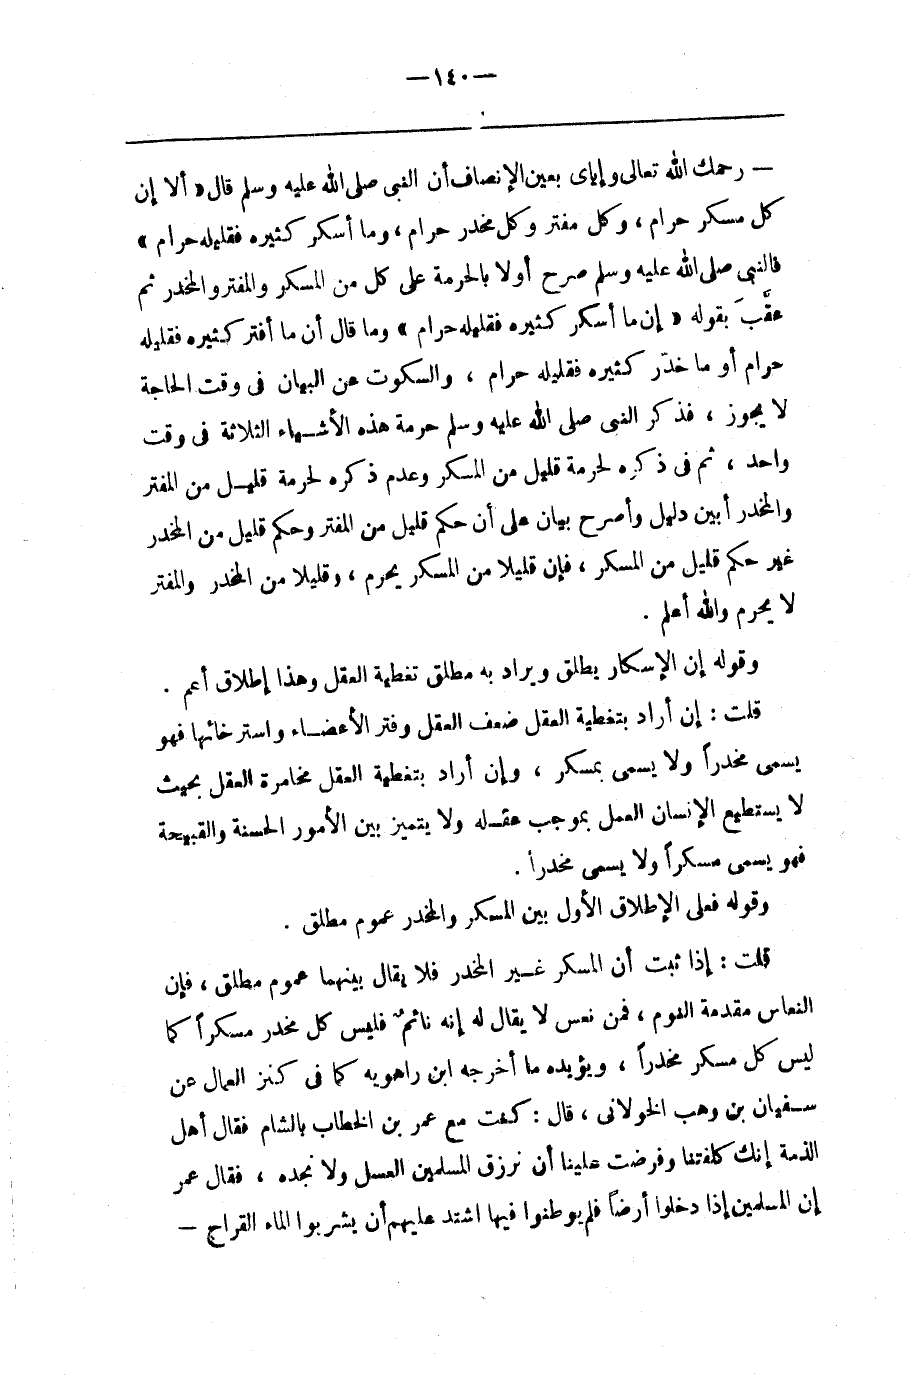 —١٤٠—
— رحمك الله تعالى وإياى بعين الإنصاف أن النبى صلى الله عليه وسلم قال « ألا إن
كل مسكر حرام ، وكل مفتر وكل مخدر حرام ، وما أسكر كثيره فقليله حرام »
فالنبى صلى الله عليه وسلم صرح أولا بالحرمة على كل من المسكر والمفتر والمخدر ثم
عقَّبَ بقوله « إن ما أسكر كثيره فقليله حرام » وما قال أن ما أفتر كثيره فقليله
حرام أو ما خدّر كثيره فقليله حرام ، والسكوت عن البيان فى وقت الحاجة
لا يجوز ، فذكر النبى صلى الله عليه وسلم حرمة هذه الأشــياء الثلاثة فى وقت
واحد ، ثم فى ذكرِه لحرمة قليل من المسكر وعدم ذكره لحرمة قليــل من المفتر
والمخدر أبين دليل وأصرح بيان على أن حكم قليل من المفتر وحكم قليل من المخدر
غير حكم قليل من المسكر ، فإن قليلا من المسكر يحرم ، وقليلا من المخدر والمفتر
لا يحرم والله أعلم .
وقوله إن الإسكار يطلق ويراد به مطلق تغطية العقل وهذا إطلاق أعم .
قلت : إن أراد بتغطية العقل ضعف العقل وفتر الأعضــاء واسترخائها فهو
يسمى مخدراً ولا يسمى بمسكر ، وإن أراد بتغطية العقل مخامرة العقل بحيث
لا يستطيع الإنسان العمل بموجب عقــله ولا يتميز بين الأمور الحسنة والقبيحة
فهو يسمى مسكراً ولا يسمى مخدراً .
وقوله فعلى الإطلاق الأول بين المسكر والمخدر عموم مطلق .
قلت : إذا ثبت أن المسكر غــير المخدر فلا يقال بينهما عموم مطلق ، فإن
النعاس مقدمة النوم ، فمن نعس لا يقال له إنه نائمٌ فليس كل مخدر مسكراً كما
ليس كل مسكر مخدراً ، ويؤيده ما أخرجه ابن راهويه كما فى كنز العمال عن
ســفيان بن وهب الخولانى ، قال : كنت مع عمر بن الخطاب بالشام فقال أهل
الذمة إنك كلفتنا وفرضت علينا أن نرزق المسلمين العسل ولا نجده ، فقال عمر
إن المسلمين إذا دخلوا أرضاً فلم يوطنوا فيها اشتد عليهم أن يشربوا الماء القراح —